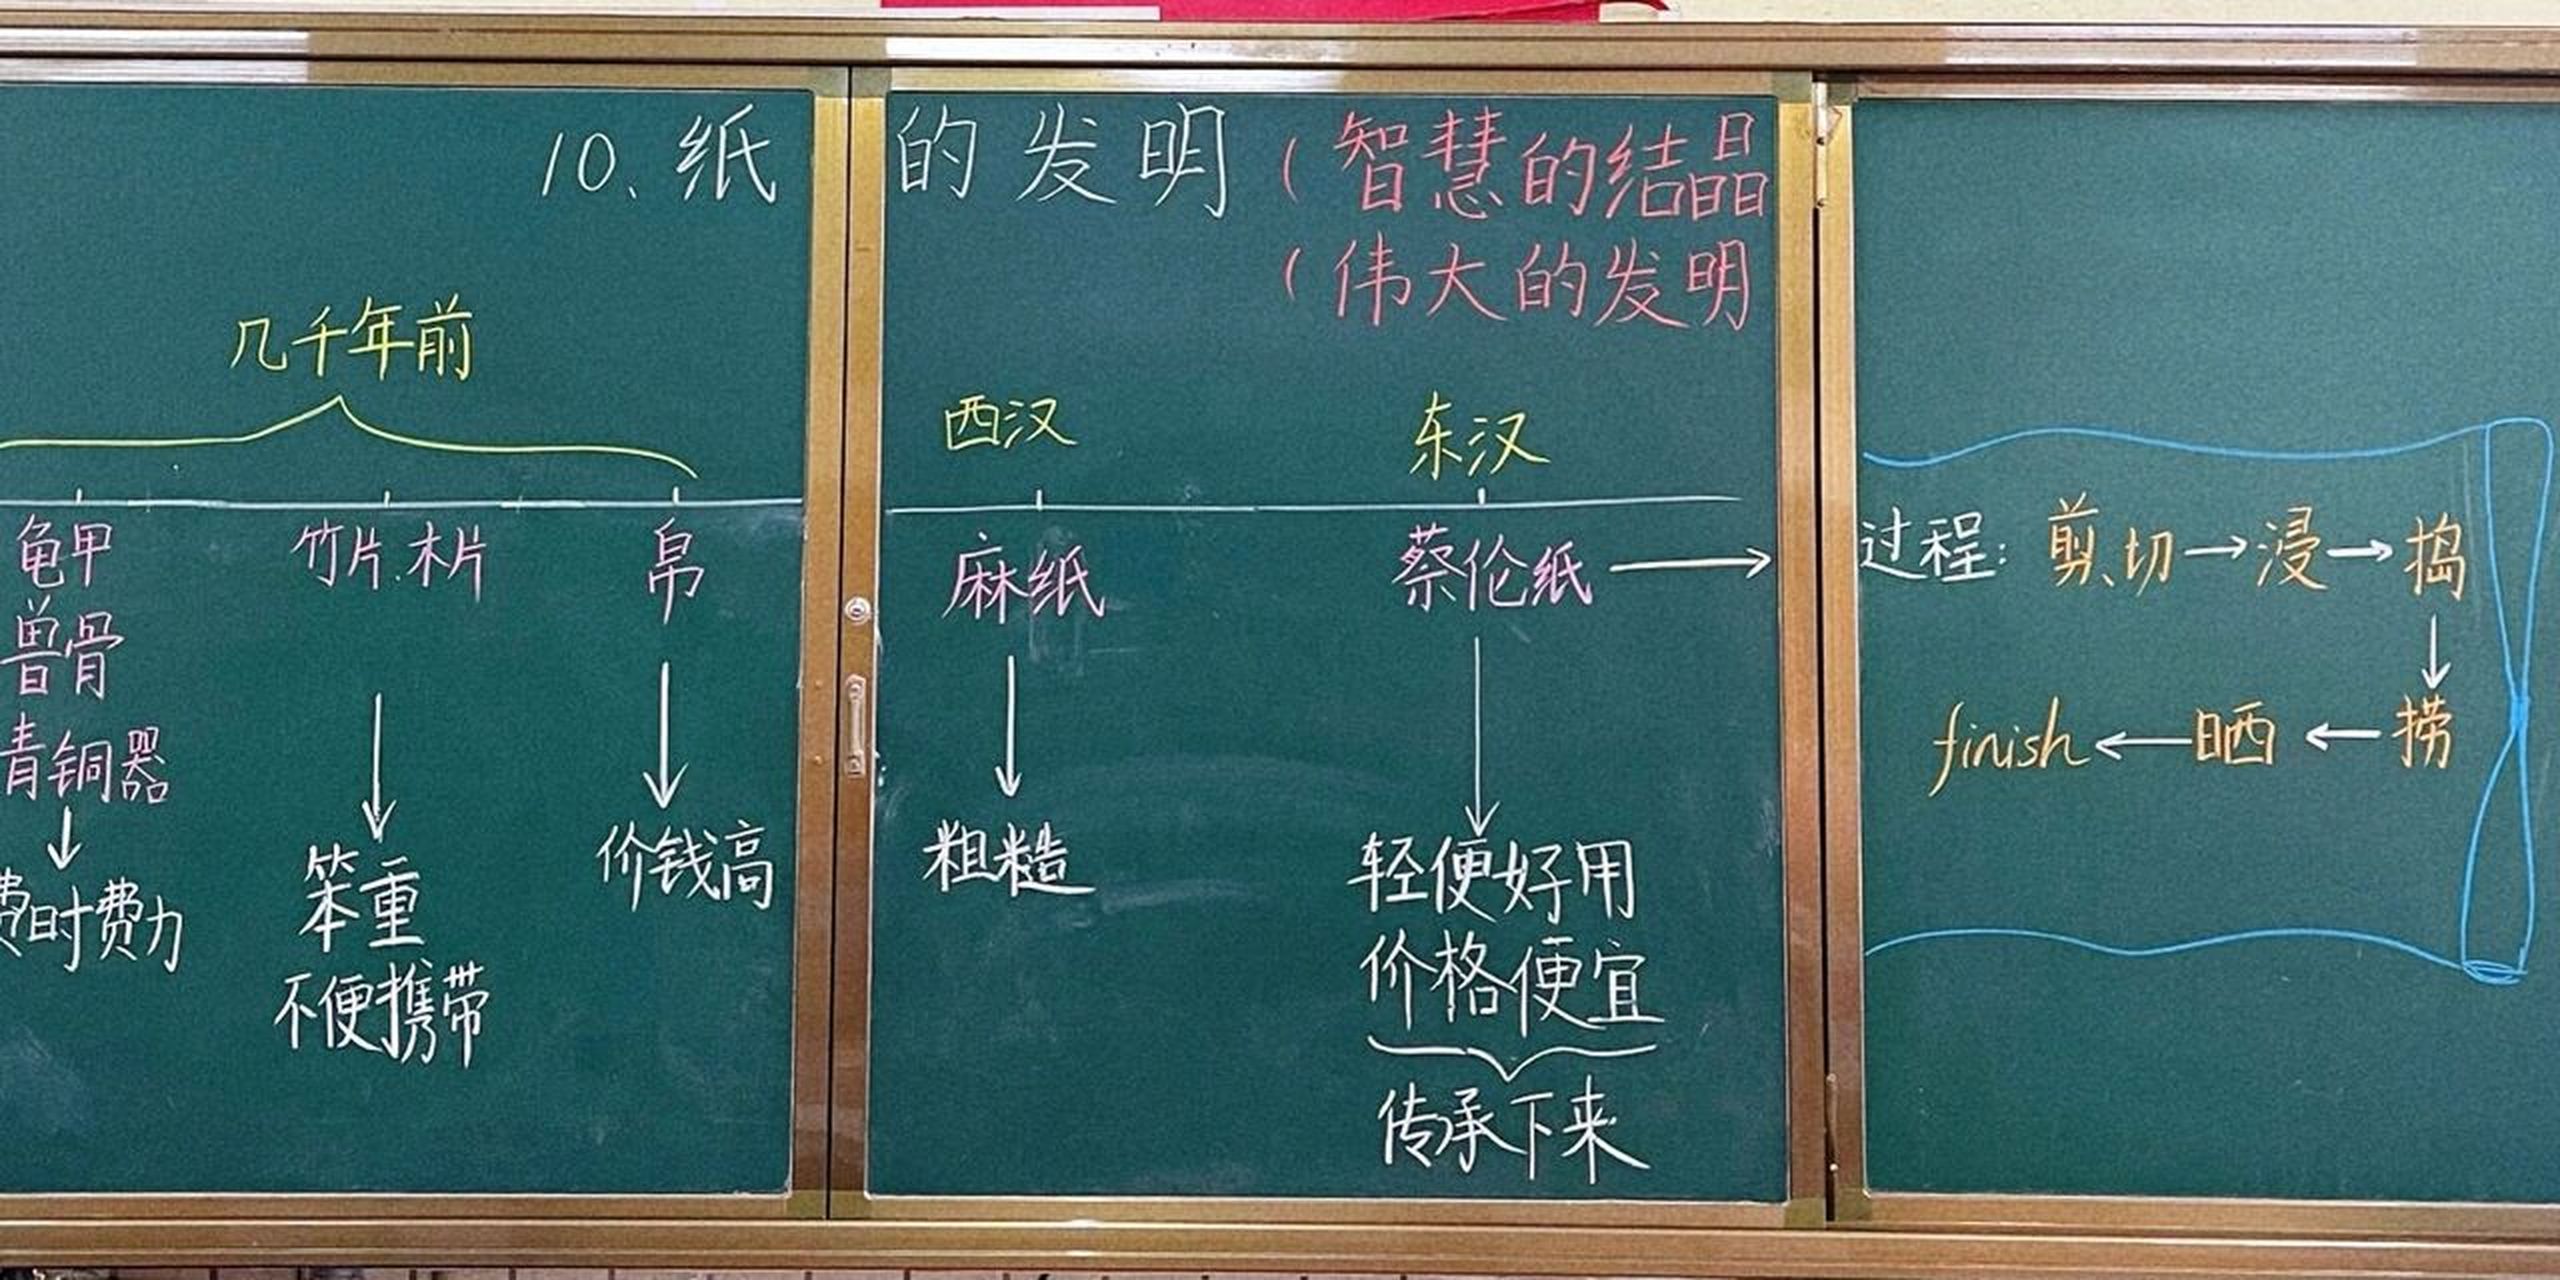 10、纸的发明（智慧的结晶
（伟大的发明
几千年前
西汉
东汉
龟甲
兽骨
青铜器
费时费力
竹片、木片
笨重
不便携带
帛
价钱高
麻纸
粗糙
蔡伦纸
轻便好用
价格便宜
传承下来
过程：剪、切→浸→捣
↓
finish←晒←捞